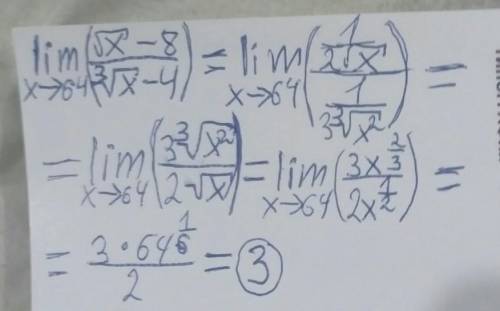 lim x→64 ((√x − 8)/(∛x − 4)) = lim x→64 ((1/(2√x))/(1/(3∛(x²)))) =
= lim x→64 ((3∛(x²))/(2√x)) = lim x→64 ((3x^(2/3))/(2x^(1/2))) =
= (3·64^(1/6))/2 = 3